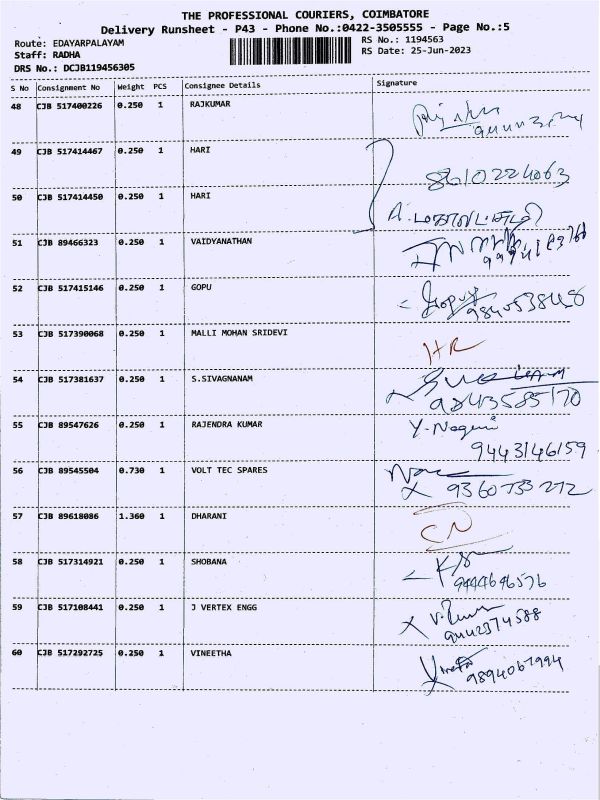 THE PROFESSIONAL COURIERS, COIMBATORE
Delivery Runsheet - P43 - Phone No.:0422-3505555 - Page No.:5
Route: EDAYARPALAYAM RS No.: 1194563
Staff: RADHA RS Date: 25-Jun-2023
DRS No.: DCJB119456305
S No Consignment No Weight PCS Consignee Details Signature
48 CJB 517400226 0.250 1 RAJKUMAR
49 CJB 517414467 0.250 1 HARI
8610224063
50 CJB 517414450 0.250 1 HARI
51 CJB 89466323 0.250 1 VAIDYANATHAN
52 CJB 517415146 0.250 1 GOPU
53 CJB 517390068 0.250 1 MALLI MOHAN SRIDEVI
HR
54 CJB 517381637 0.250 1 S.SIVAGNANAM
9843585170
55 CJB 89547626 0.250 1 RAJENDRA KUMAR Y. Nagini
9443146159
56 CJB 89545504 0.730 1 VOLT TEC SPARES
X 9360733272
57 CJB 89618086 1.360 1 DHARANI
CN
58 CJB 517314921 0.250 1 SHOBANA
9444646576
59 CJB 517108441 0.250 1 J VERTEX ENGG
9442374588
60 CJB 517292725 0.250 1 VINEETHA
9894067994